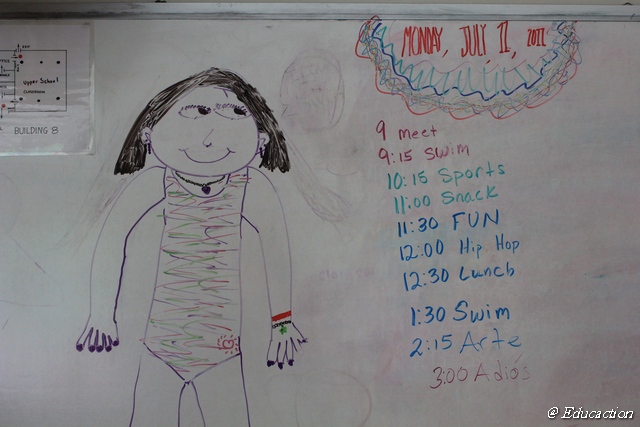 Upper School
BUILDING 8
MONDAY, JULY 11, 2011
9 meet
9:15 Swim
10:15 Sports
11:00 Snack
11:30 FUN
12:00 Hip Hop
12:30 Lunch
1:30 Swim
2:15 Arte
3:00 Adiós
@ Educaction